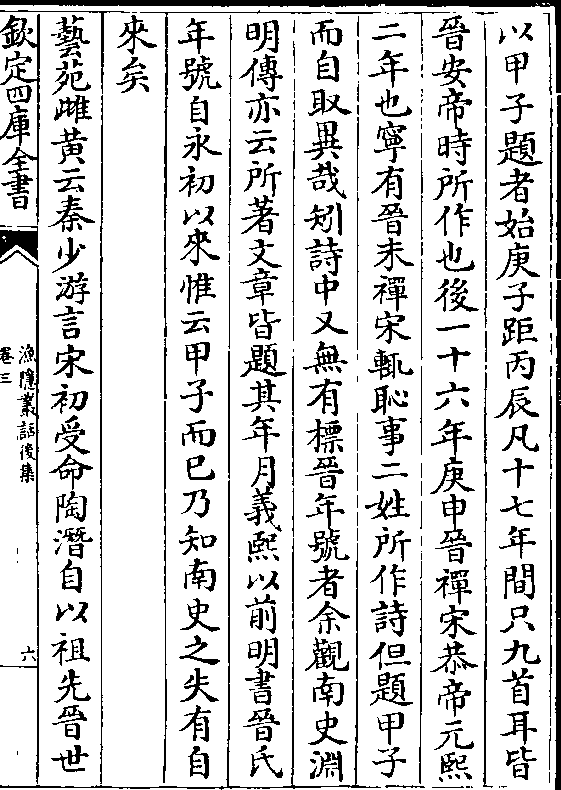 以甲子題者始庚子距丙辰凡十七年間只九首耳皆
晉安帝時所作也後一十六年庚申晉禪宋恭帝元熙
二年也寧有晉未禪宋輒恥事二姓所作詩但題甲子
而自取異哉矧詩中又無有標晉年號者余觀南史淵
明傳亦云所著文章皆題其年月義熙以前明書晉氏
年號自永初以來惟云甲子而已乃知南史之失有自
來矣
藝苑雌黃云秦少游言宋初受命陶潛自以祖先晉世
欽定四庫全書
漁隱叢話後集
卷三
六